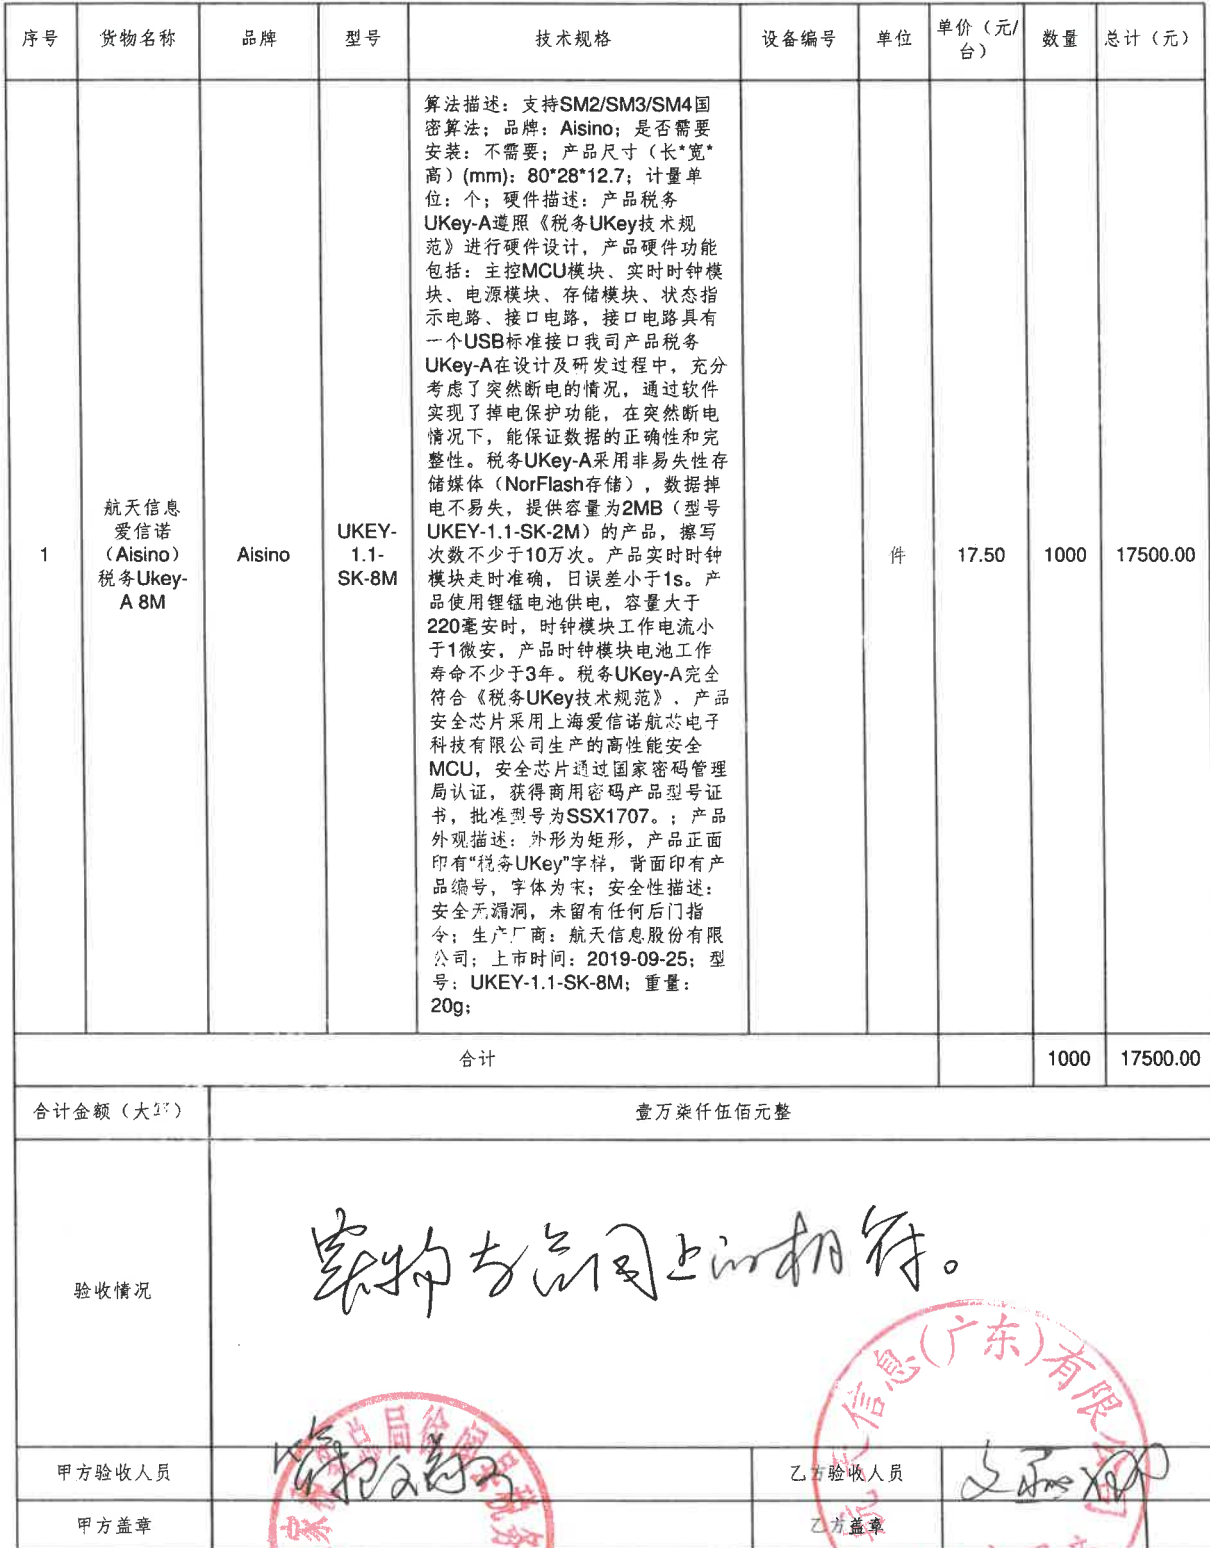 序号 货物名称 品牌 型号 技术规格 设备编号 单位 单价（元/台） 数量 总计（元）
算法描述：支持SM2/SM3/SM4国
密算法；品牌：Aisino；是否需要
安装：不需要；产品尺寸（长*宽*
高）(mm)：80*28*12.7；计量单
位：个；硬件描述：产品税务
UKey-A遵照《税务UKey技术规
范》进行硬件设计，产品硬件功能
包括：主控MCU模块、实时时钟模
块、电源模块、存储模块、状态指
示电路、接口电路，接口电路具有
一个USB标准接口我司产品税务
UKey-A在设计及研发过程中，充分
考虑了突然断电的情况，通过软件
实现了掉电保护功能，在突然断电
情况下，能保证数据的正确性和完
整性。税务UKey-A采用非易失性存
储媒体（NorFlash存储），数据掉
电不易失，提供容量为2MB（型号
UKEY-1.1-SK-2M）的产品，擦写
次数不少于10万次。产品实时时钟
模块走时准确，日误差小于1s。产
品使用锂锰电池供电，容量大于
220毫安时，时钟模块工作电流小
于1微安，产品时钟模块电池工作
寿命不少于3年。税务UKey-A完全
符合《税务UKey技术规范》、产品
安全芯片采用上海爱信诺航芯电子
科技有限公司生产的高性能安全
MCU，安全芯片通过国家密码管理
局认证，获得商用密码产品型号证
书，批准型号为SSX1707。；产品
外观描述：外形为矩形，产品正面
印有“税务UKey”字样，背面印有产
品编号，字体为宋；安全性描述：
安全无漏洞，未留有任何后门指
令；生产厂商：航天信息股份有限
公司；上市时间：2019-09-25；型
号：UKEY-1.1-SK-8M；重量：
20g；
1
航天信息
爱信诺
（Aisino）
税务Ukey-
A 8M
Aisino
UKEY-
1.1-
SK-8M
件 17.50 1000 17500.00
合计 1000 17500.00
合计金额（大写） 壹万柒仟伍佰元整
验收情况
实物与合同上的相符。
甲方验收人员 乙方验收人员
甲方盖章 乙方盖章
航天信息(广东)有限公司